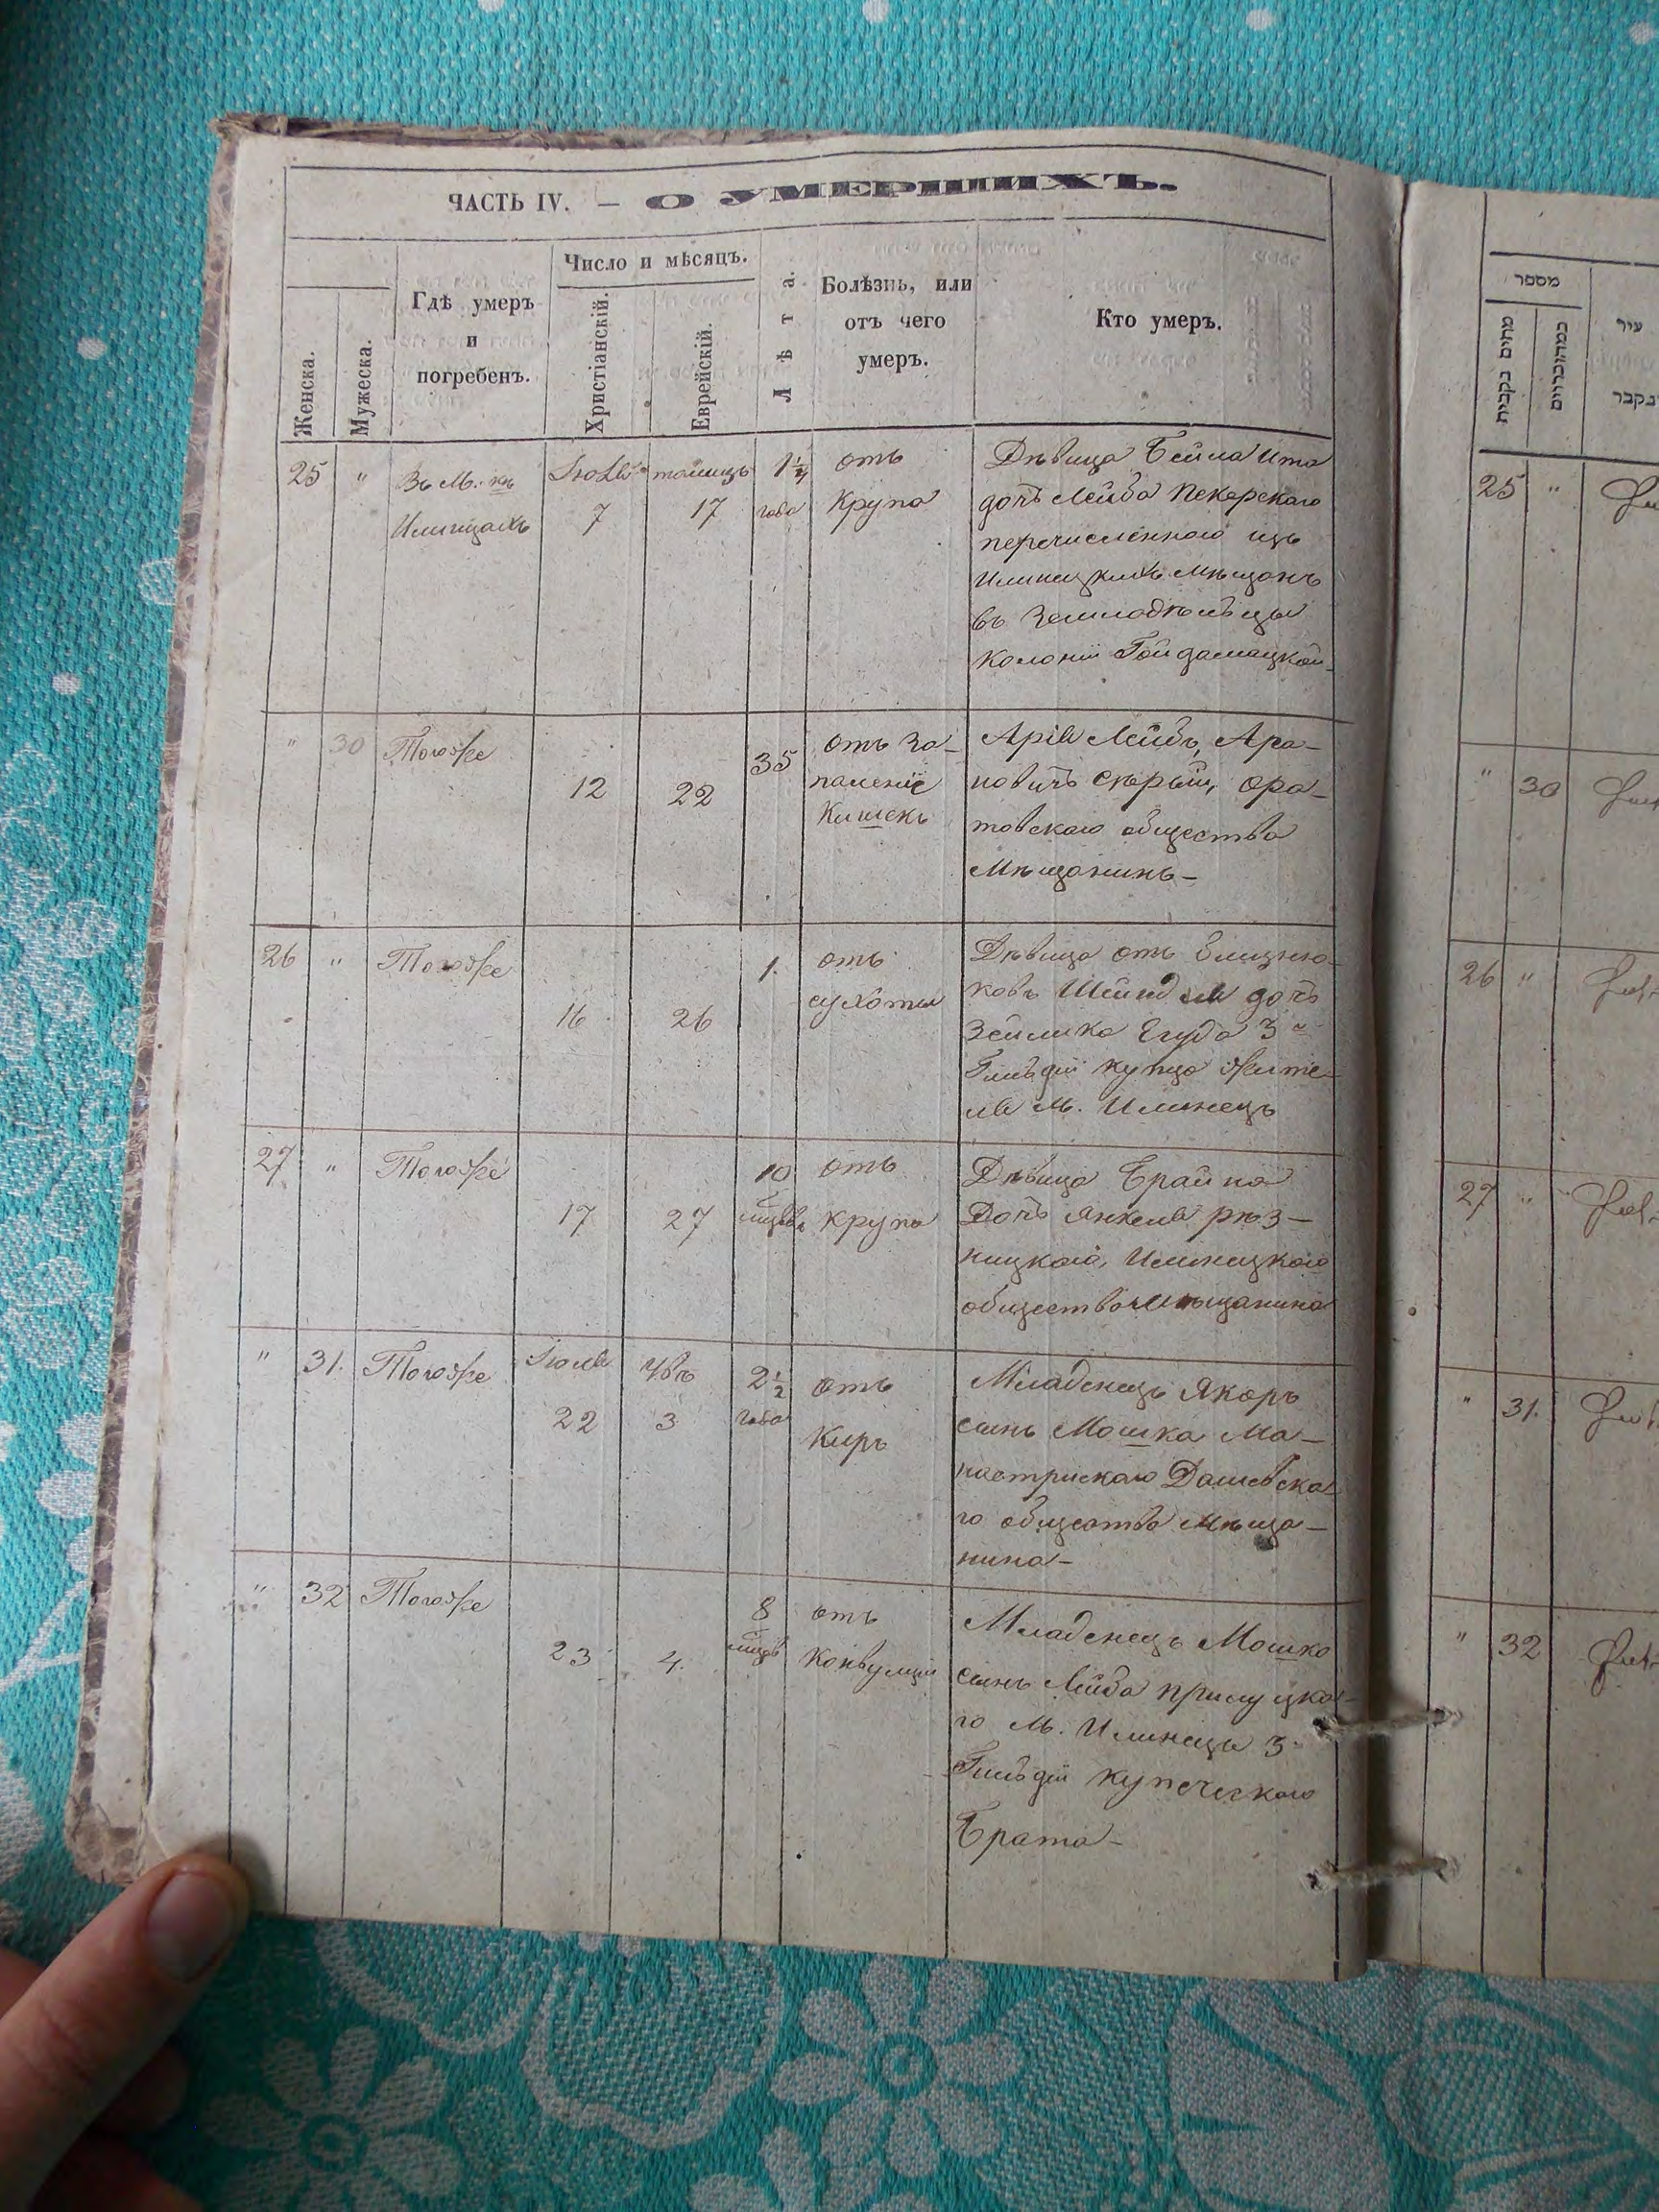 ЧАСТЬ IV. — О УМЕРШИХЪ.
Женска.
Мужеска.
Гдѣ умеръ
и
погребенъ.
Число и мѣсяцъ.
Христіанскій.
Еврейскій.
Лѣта.
Болѣзнь, или
отъ чего
умеръ.
Кто умеръ.
25 " Въ М.
Илинцахъ
7
17
1¼
года
отъ
Крупа
Дѣвица Бейла Ита
дочь Лейба Пекерскаго
перечисленнаго изъ
Илинецкихъ Мѣщанъ
въ Земледѣльцы
Колоніи Гайдамацкой
" 30 Тогоже
12
22
35
отъ за-
паленіе
Кишекъ
Арія Лейбъ, Ара-
новичъ Скрый, Ора-
товскаго общества
Мѣщанинъ-
26 " Тогоже
16
26
1.
отъ
сухоты
Дѣвица отъ близню-
ковъ Шейндля дочь
Зейлика Егуда 3й
Гильдіи купца Жите-
ля М. Илинецъ
27 " Тогоже
17
27
10
отъ
крупа
Дѣвица Брайна
Дочь Янкеля Рѣз-
ницкаго, Илинецкаго
общества мѣщанина
" 31. Тогоже
Іюля
22
3
2½
года
отъ
Киръ
Младенецъ Якоръ
сынъ Мошка Ма-
настрискаго Дашевска-
го общества мѣща-
нина-
" 32 Тогоже
23
4.
8
отъ
Конвульціи
Младенецъ Мошко
сынъ Лейба Прилуцка-
го М. Илинецъ 3й
Гильдіи купеческаго
Брата-
מספר
עיר
25 "
" 30
26 "
27 "
" 31.
" 32